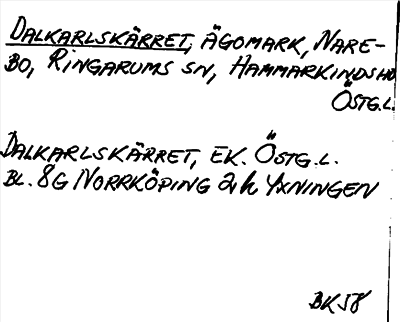 DALKARLSKÄRRET, ÄGOMARK, NARE-
BO, RINGARUMS SN, HAMMARKINDS HD
ÖSTG.L.
DALKARLSKÄRRET, EK. ÖSTG.L.
BL. 8G NORRKÖPING 2h YXNINGEN
BK58